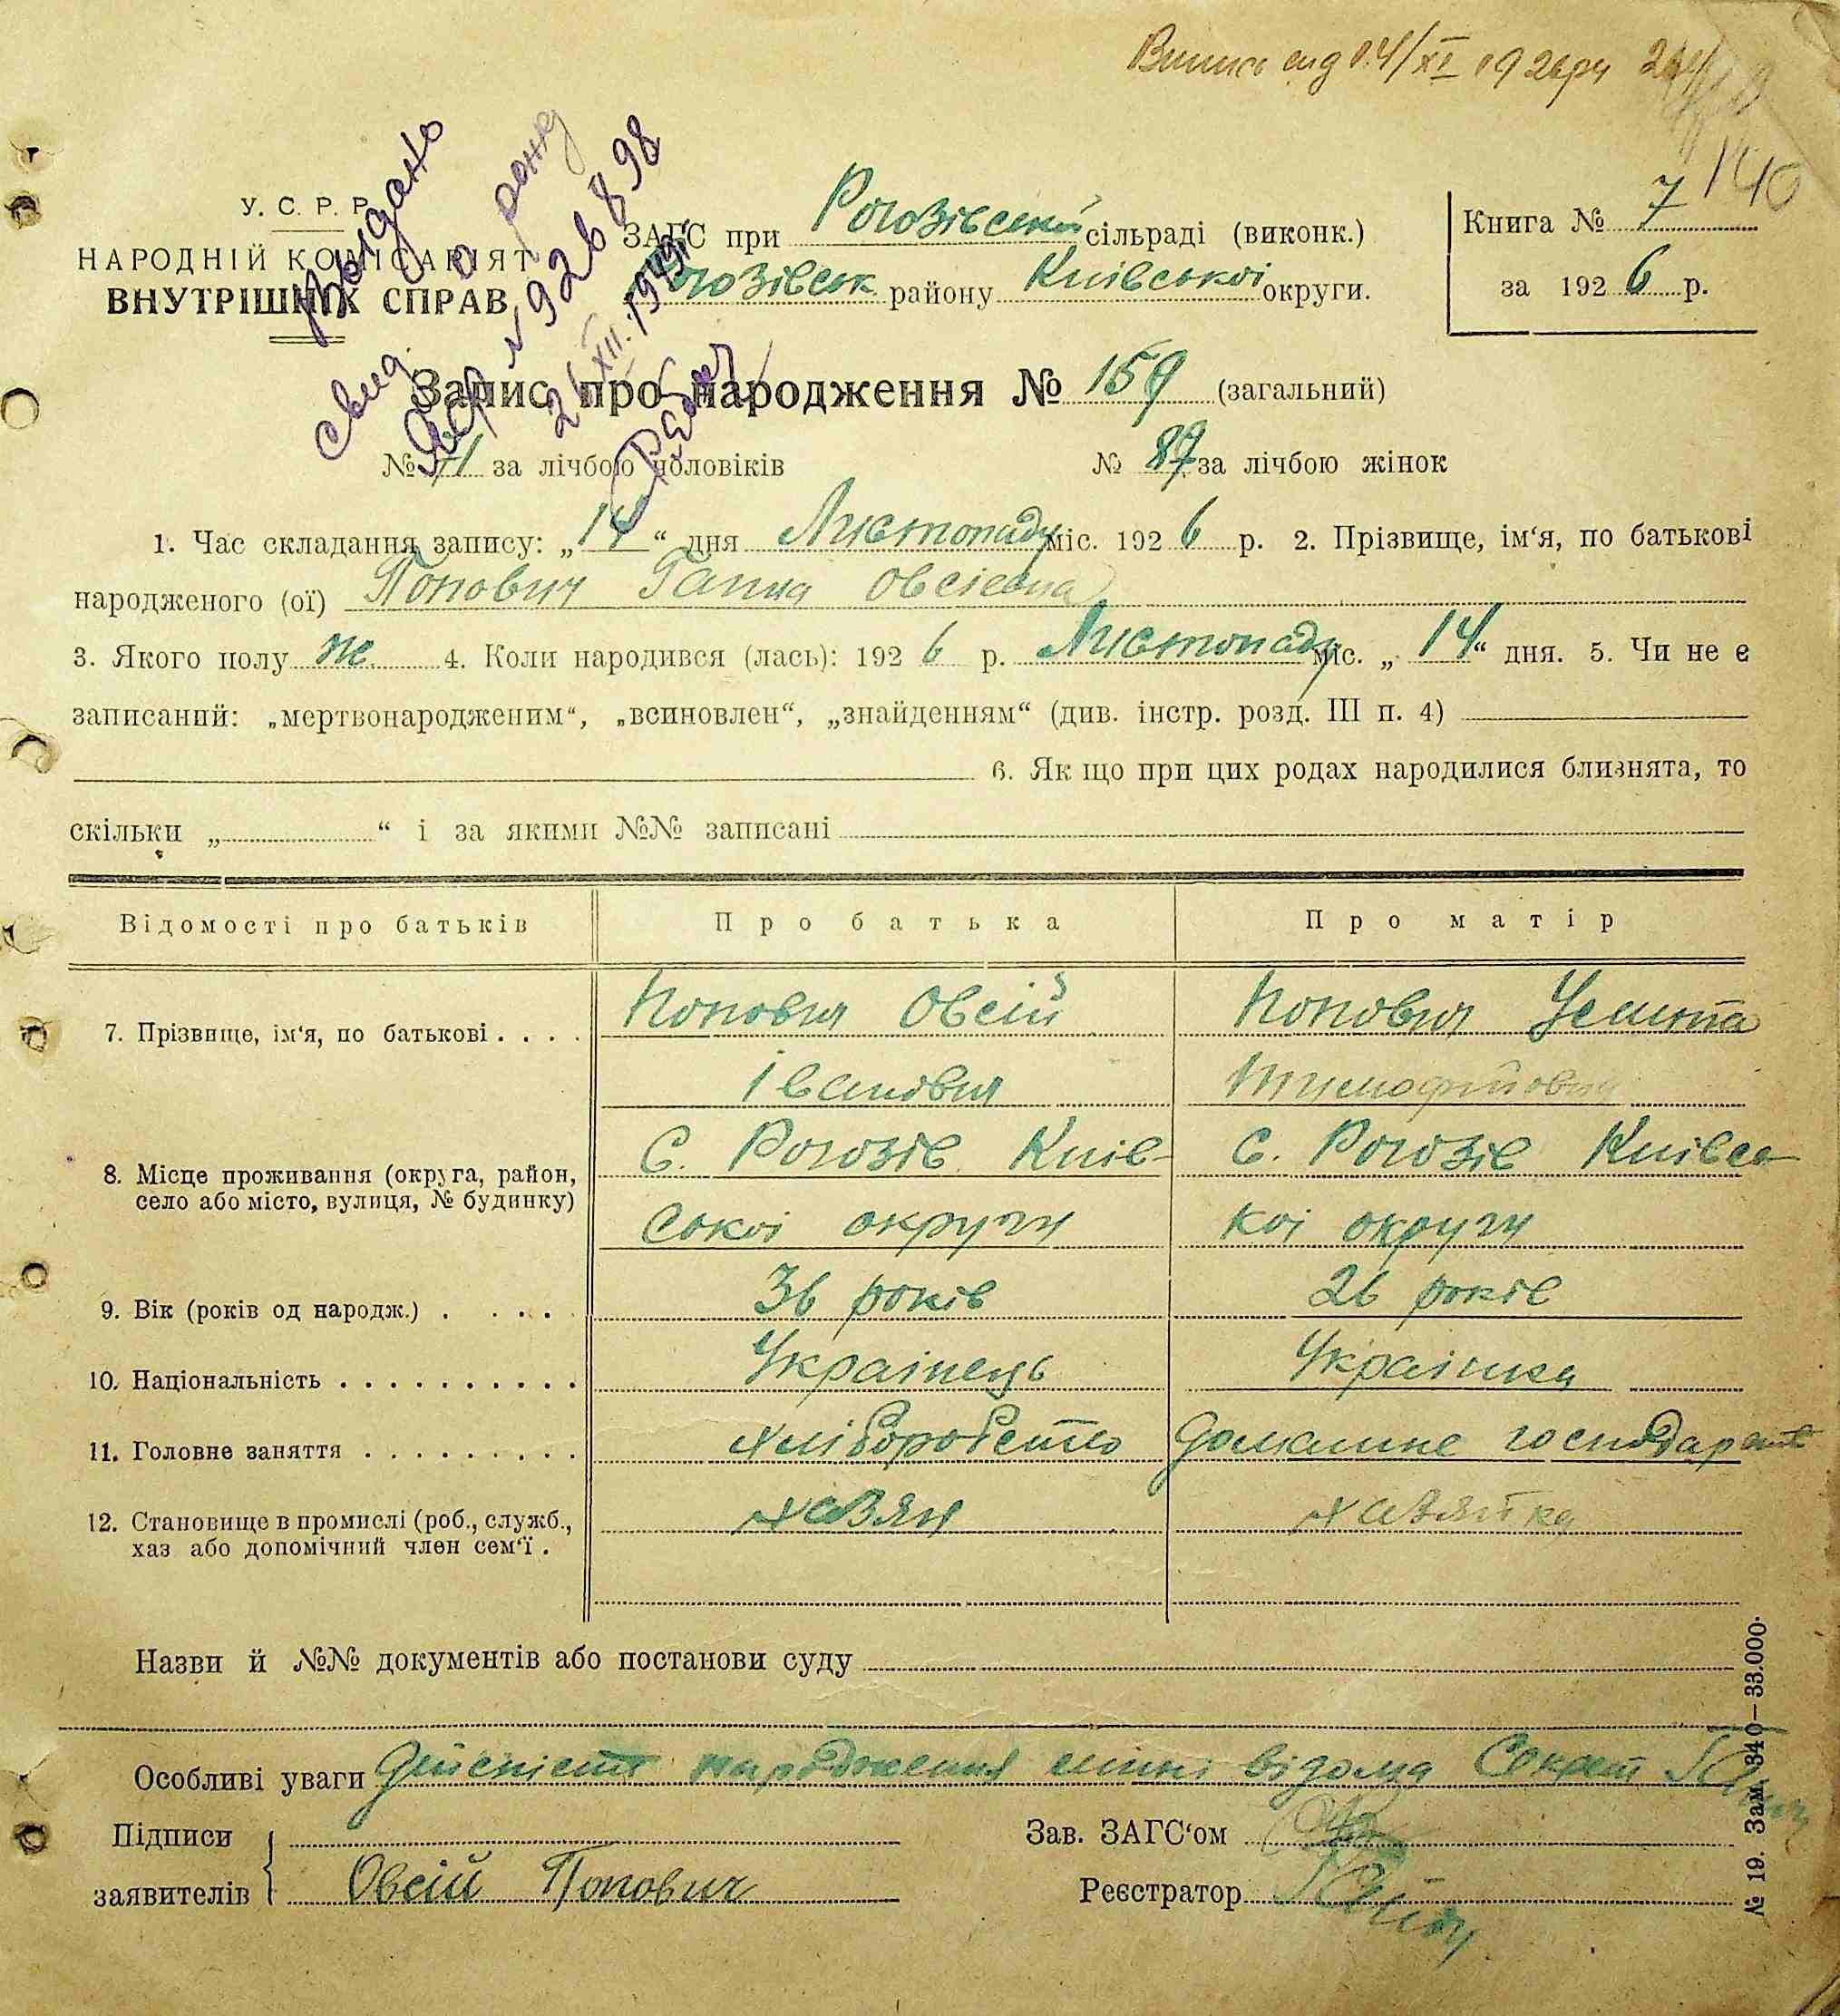 Випись 14/XI 1926 р
140
У. С. Р. Р.
НАРОДНІЙ КОМІСАРІЯТ
ВНУТРІШНІХ СПРАВ
Выдано
свид. о рожд
ЯСР № 926898
26/XII. 1949
ЗАГС при Рогозівській сільраді (виконк.)
Рогозівськ району Київської округи.
Книга № 7
за 1926 р.
Запис про народження № 159 (загальний)
№ 71 за лічбою чоловіків № 87 за лічбою жінок
1. Час складання запису: „14“ дня Листопаду міс. 1926 р. 2. Прізвище, ім‘я, по батькові
народженого (ої) Попович Ганна Овсієвна
3. Якого полу ж. 4. Коли народився (лась): 1926 р. Листопаду міс. „14“ дня. 5. Чи не є
записаний: „мертвонародженим“, „всиновлен“, „знайденням“ (див. інстр. розд. III п. 4)
6. Як що при цих родах народилися близнята, то
скільки „ “ і за якими №№ записані
Відомості про батьків Про батька Про матір
7. Прізвище, ім‘я, по батькові . . . . Попович Овсій Попович Улита
Іванович Тимофійовна
8. Місце проживання (округа, район, С. Рогозів Київ- С. Рогозів Київсь
село або місто, вулиця, № будинку)
ської округи кої округи
9. Вік (років од народж.) . . . . . 36 років 26 років
10. Національність . . . . . . . . . . Українець Українка
11. Головне заняття . . . . . . . . . хліборобство домашнє господарст
12. Становище в промислі (роб., служб., хазяїн хазяйка
хаз або допомічний член сем‘ї .
Назви й №№ документів або постанови суду
Особливі уваги Дійсність народження мині відома Секрет
Підписи
заявителів Овсій Попович
Зав. ЗАГС‘ом
Реєстратор
№ 19. Зам. 340—33.000.